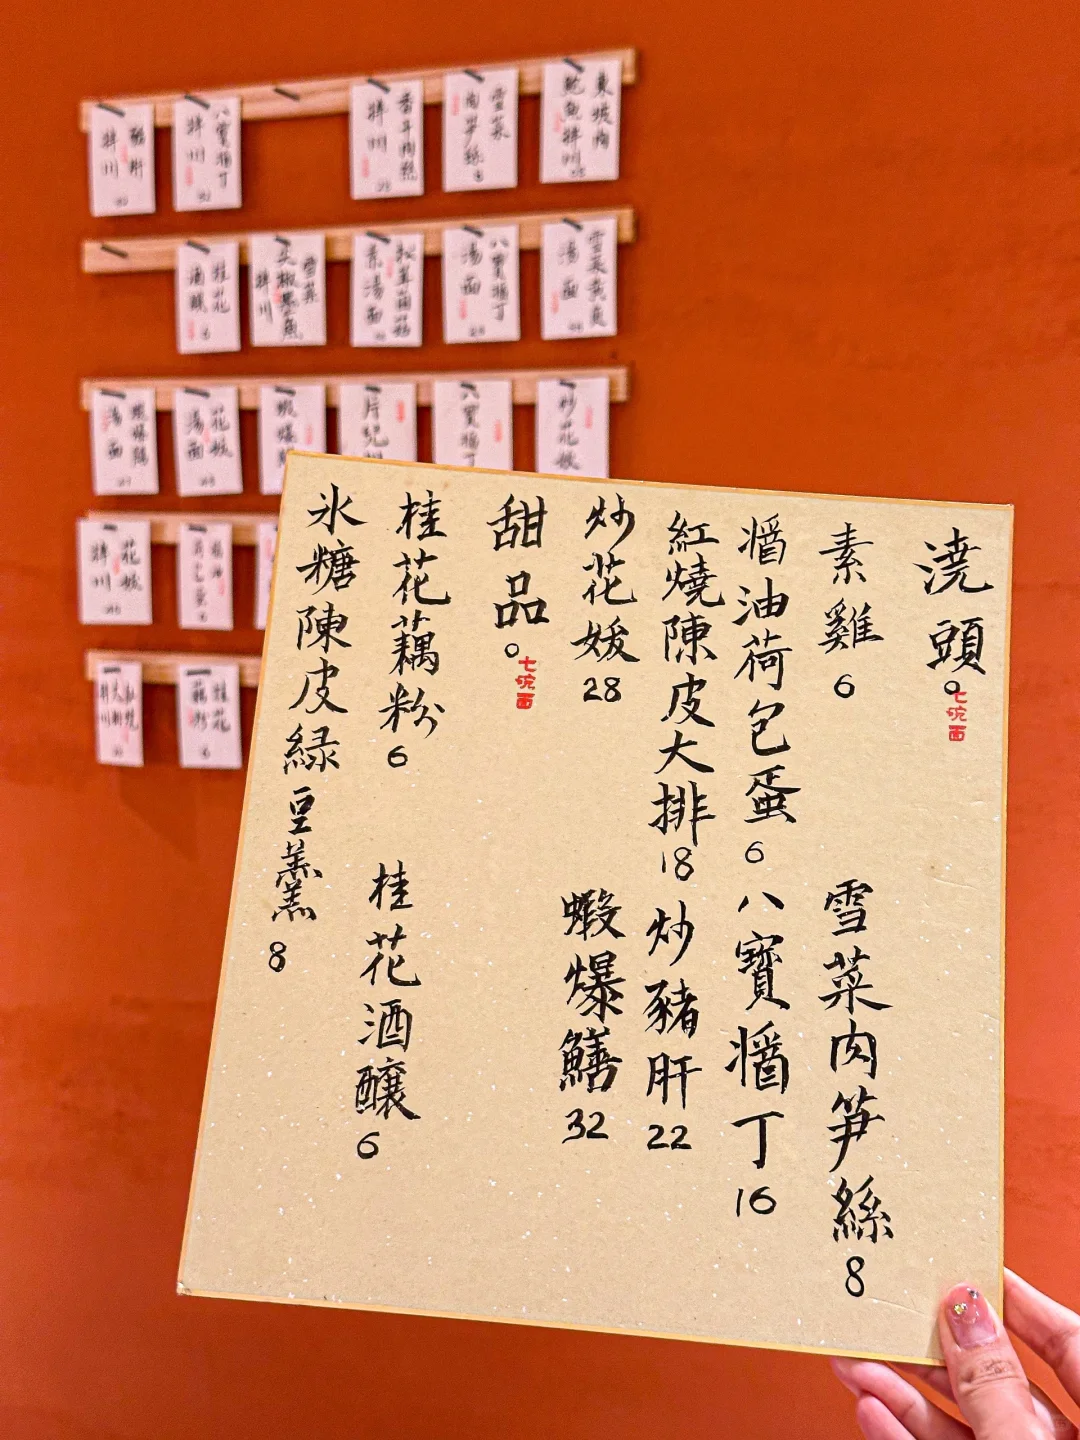 澆頭
七碗面
素雞 6
雪菜肉笋絲 8
醬油荷包蛋 6
八寶醬丁 16
紅燒陳皮大排 18
炒豬肝 22
炒花媛 28
蝦爆鱔 32
甜品
七碗面
桂花藕粉 6
桂花酒釀 6
氷糖陳皮緑豆羹 8
東坡肉
鮑魚拌川
雪菜
肉笋絲
8
香干肉絲
拌川
八寶醬丁
拌川
雪菜黄魚
湯面
八寶醬丁
湯面
素湯面
雪菜
拌川
桂花
酒釀
6
炒花媛
八寶醬丁
片兒川
蝦爆鱔
花媛
湯面
蝦爆鱔
湯面
花媛
拌川
桂花
藕粉
6